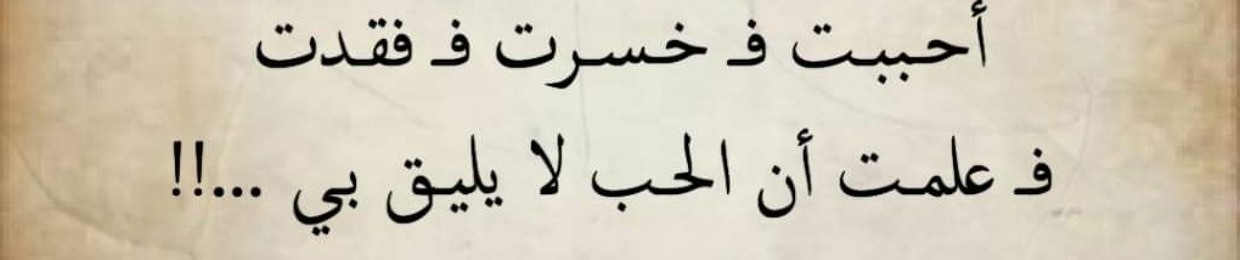 أحببت فـ خسرت فـ فقدت
فـ علمت أن الحب لا يليق بي ...!!